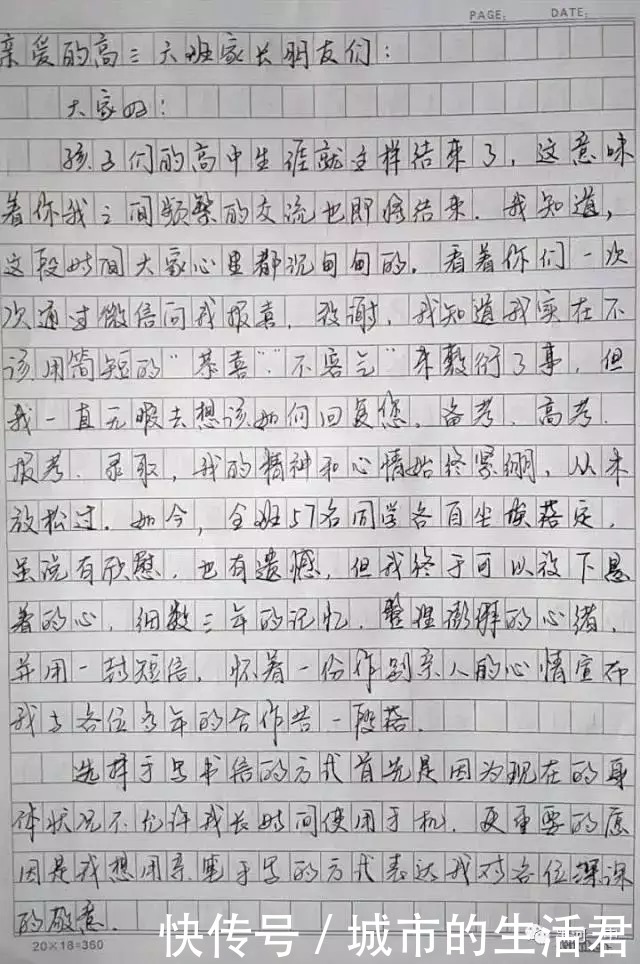 PAGE: DATE:
亲爱的高三六班家长朋友们：
大家好：
孩子们的高中生涯就这样结束了，这意味
着你我之间频繁的交流也即将结束．我知道，
这段时间大家心里都沉甸甸的．看着你们一次
次通过微信向我报喜．致谢，我知道我实在不
该用简短的“恭喜”“不客气”来敷衍了事，但
我一直无暇去想该如何回复您．备考．高考．
报考．录取，我的精神和心情始终紧绷，从未
放松过．如今，全班57名同学各自尘埃落定．
虽说有欣慰．也有遗憾．但我终于可以放下悬
着的心．细数三年的记忆．整理澎湃的心绪．
并用一封短信．怀着一份作别亲人的心情宣布
我与各位多年的合作告一段落．
选择手写书信的方式首先是因为现在的身
体状况不允许我长时间使用手机．更重要的原
因是我想用亲笔手写的方式表达我对各位深深
的敬意．
20×18=360
快传号 / 城市的生活君